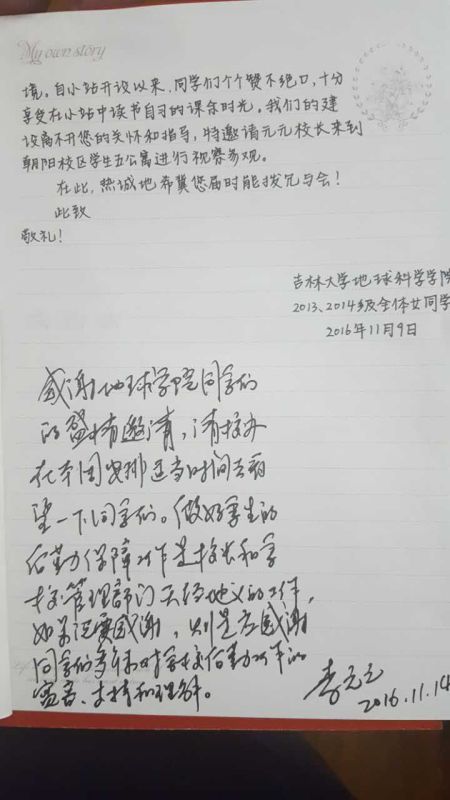 My own story
境。自小站开设以来,同学们个个赞不绝口,十分
享受在小站中读书自习的课余时光。我们的建
设离不开您的关怀和指导,特邀请元元校长来到
朝阳校区学生五公寓进行视察参观。
在此,热诚地希冀您届时能拨冗与会!
此致
敬礼!
吉林大学地球科学学院
2013、2014级全体女同学
2016年11月9日
感谢地球学院同学们
的盛情邀请,请校办
在本周安排适当时间去看
望一下同学们。做好学生的
后勤保障工作是校长和学
校管理部门天经地义的工作,
如果说要感谢,则是应感谢
同学们多年对学校后勤工作的
宽容、支持和理解。
李元元
2016.11.14